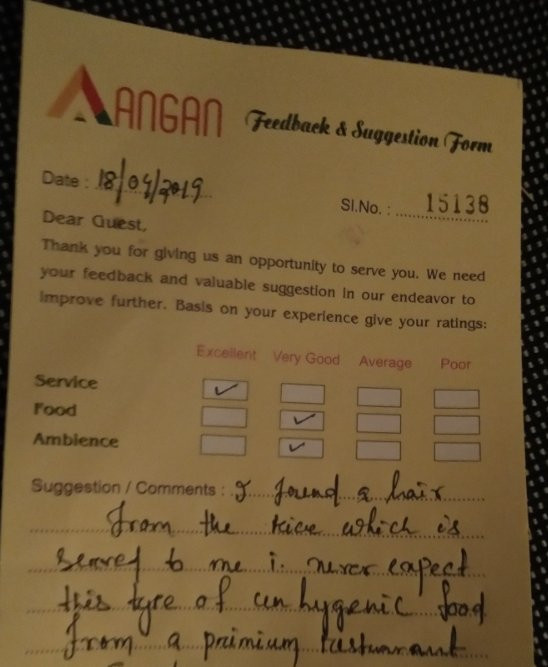 AANGAN Feedback & Suggestion Form
Date : 18/04/2019
Sl.No. : 15138
Dear Guest,
Thank you for giving us an opportunity to serve you. We need
your feedback and valuable suggestion in our endeavor to
improve further. Basis on your experience give your ratings:
Excellent Very Good Average Poor
Service
Food
Ambience
Suggestion / Comments : I found a hair
from the rice which is
served to me i. never expect
this tyre of unhygenic food
from a primium resturant